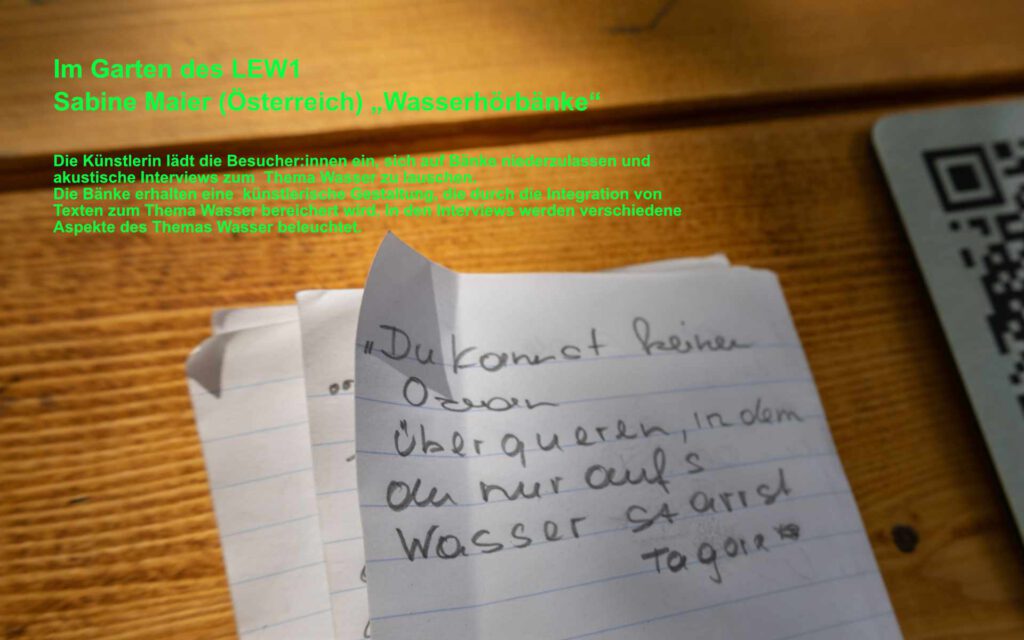 Im Garten des LEW1
Sabine Maier (Österreich) „Wasserhörbänke“
Die Künstlerin lädt die Besucher:innen ein, sich auf Bänke niederzulassen und
akustische Interviews zum Thema Wasser zu lauschen.
Die Bänke erhalten eine künstlerische Gestaltung, die durch die Integration von
Texten zum Thema Wasser bereichert wird. In den Interviews werden verschiedene
Aspekte des Themas Wasser beleuchtet.
„Du kannst keinen
Ozean
überqueren, in dem
du nur aufs
Wasser starrst
Tagore